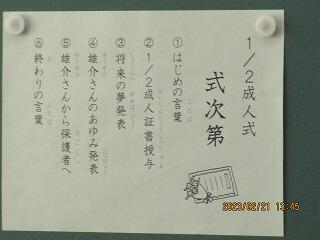 1/2成人式
式次第
①はじめの言葉
②1/2成人証書授与
③将来の夢発表
④雄介さんのあゆみ発表
⑤雄介さんから保護者へ
⑥終わりの言葉
2023/02/21 13:45